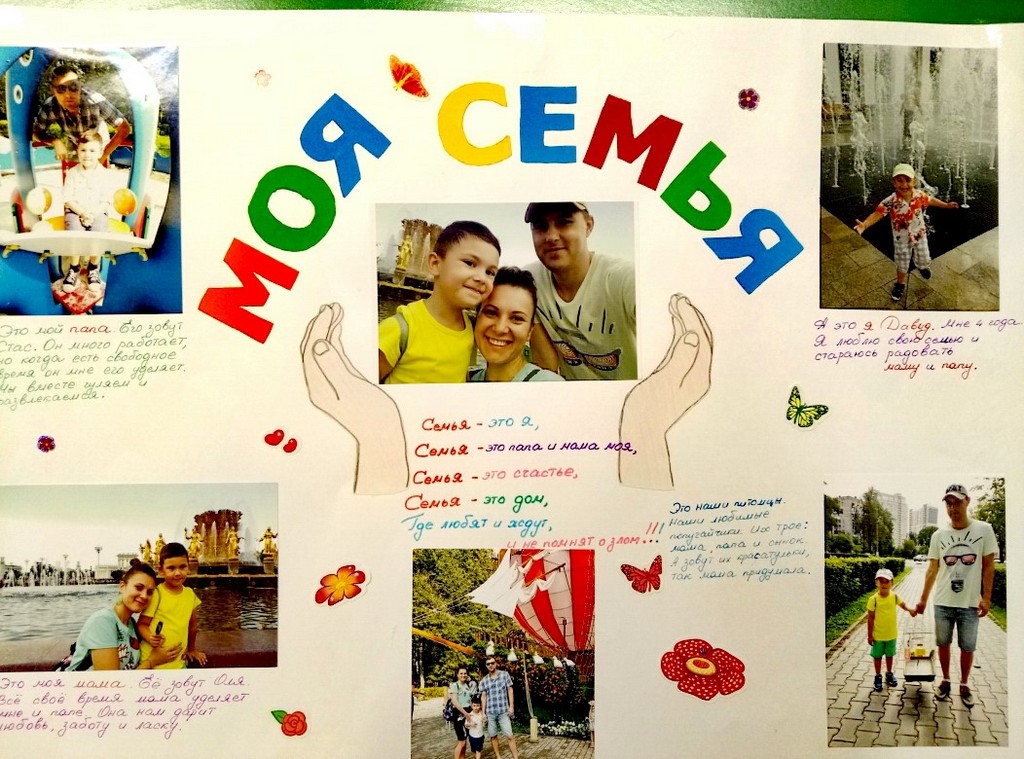 МОЯ СЕМЬЯ
Это мой папа. Его зовут
Стас. Он много работает,
но когда есть свободное
время он мне его уделяет.
Мы вместе гуляем и
развлекаемся.
А это я Давуд. Мне 4 года.
Я люблю свою семью и
стараюсь радовать
маму и папу.
Семья - это я,
Семья - это папа и мама моя,
Семья - это счастье,
Семья - это дом,
Где любят и ждут,
и не помнят о злом...!!!
Это наши питомцы.
Наши любимые
попугайчики. Их трое:
мама, папа и сынок.
А зовут их фрасатульки,
так мама придумала.
Это моя мама. Её зовут Оля.
Всё своё время мама уделяет
мне и папе. Она нам дарит
любовь, заботу и ласку.